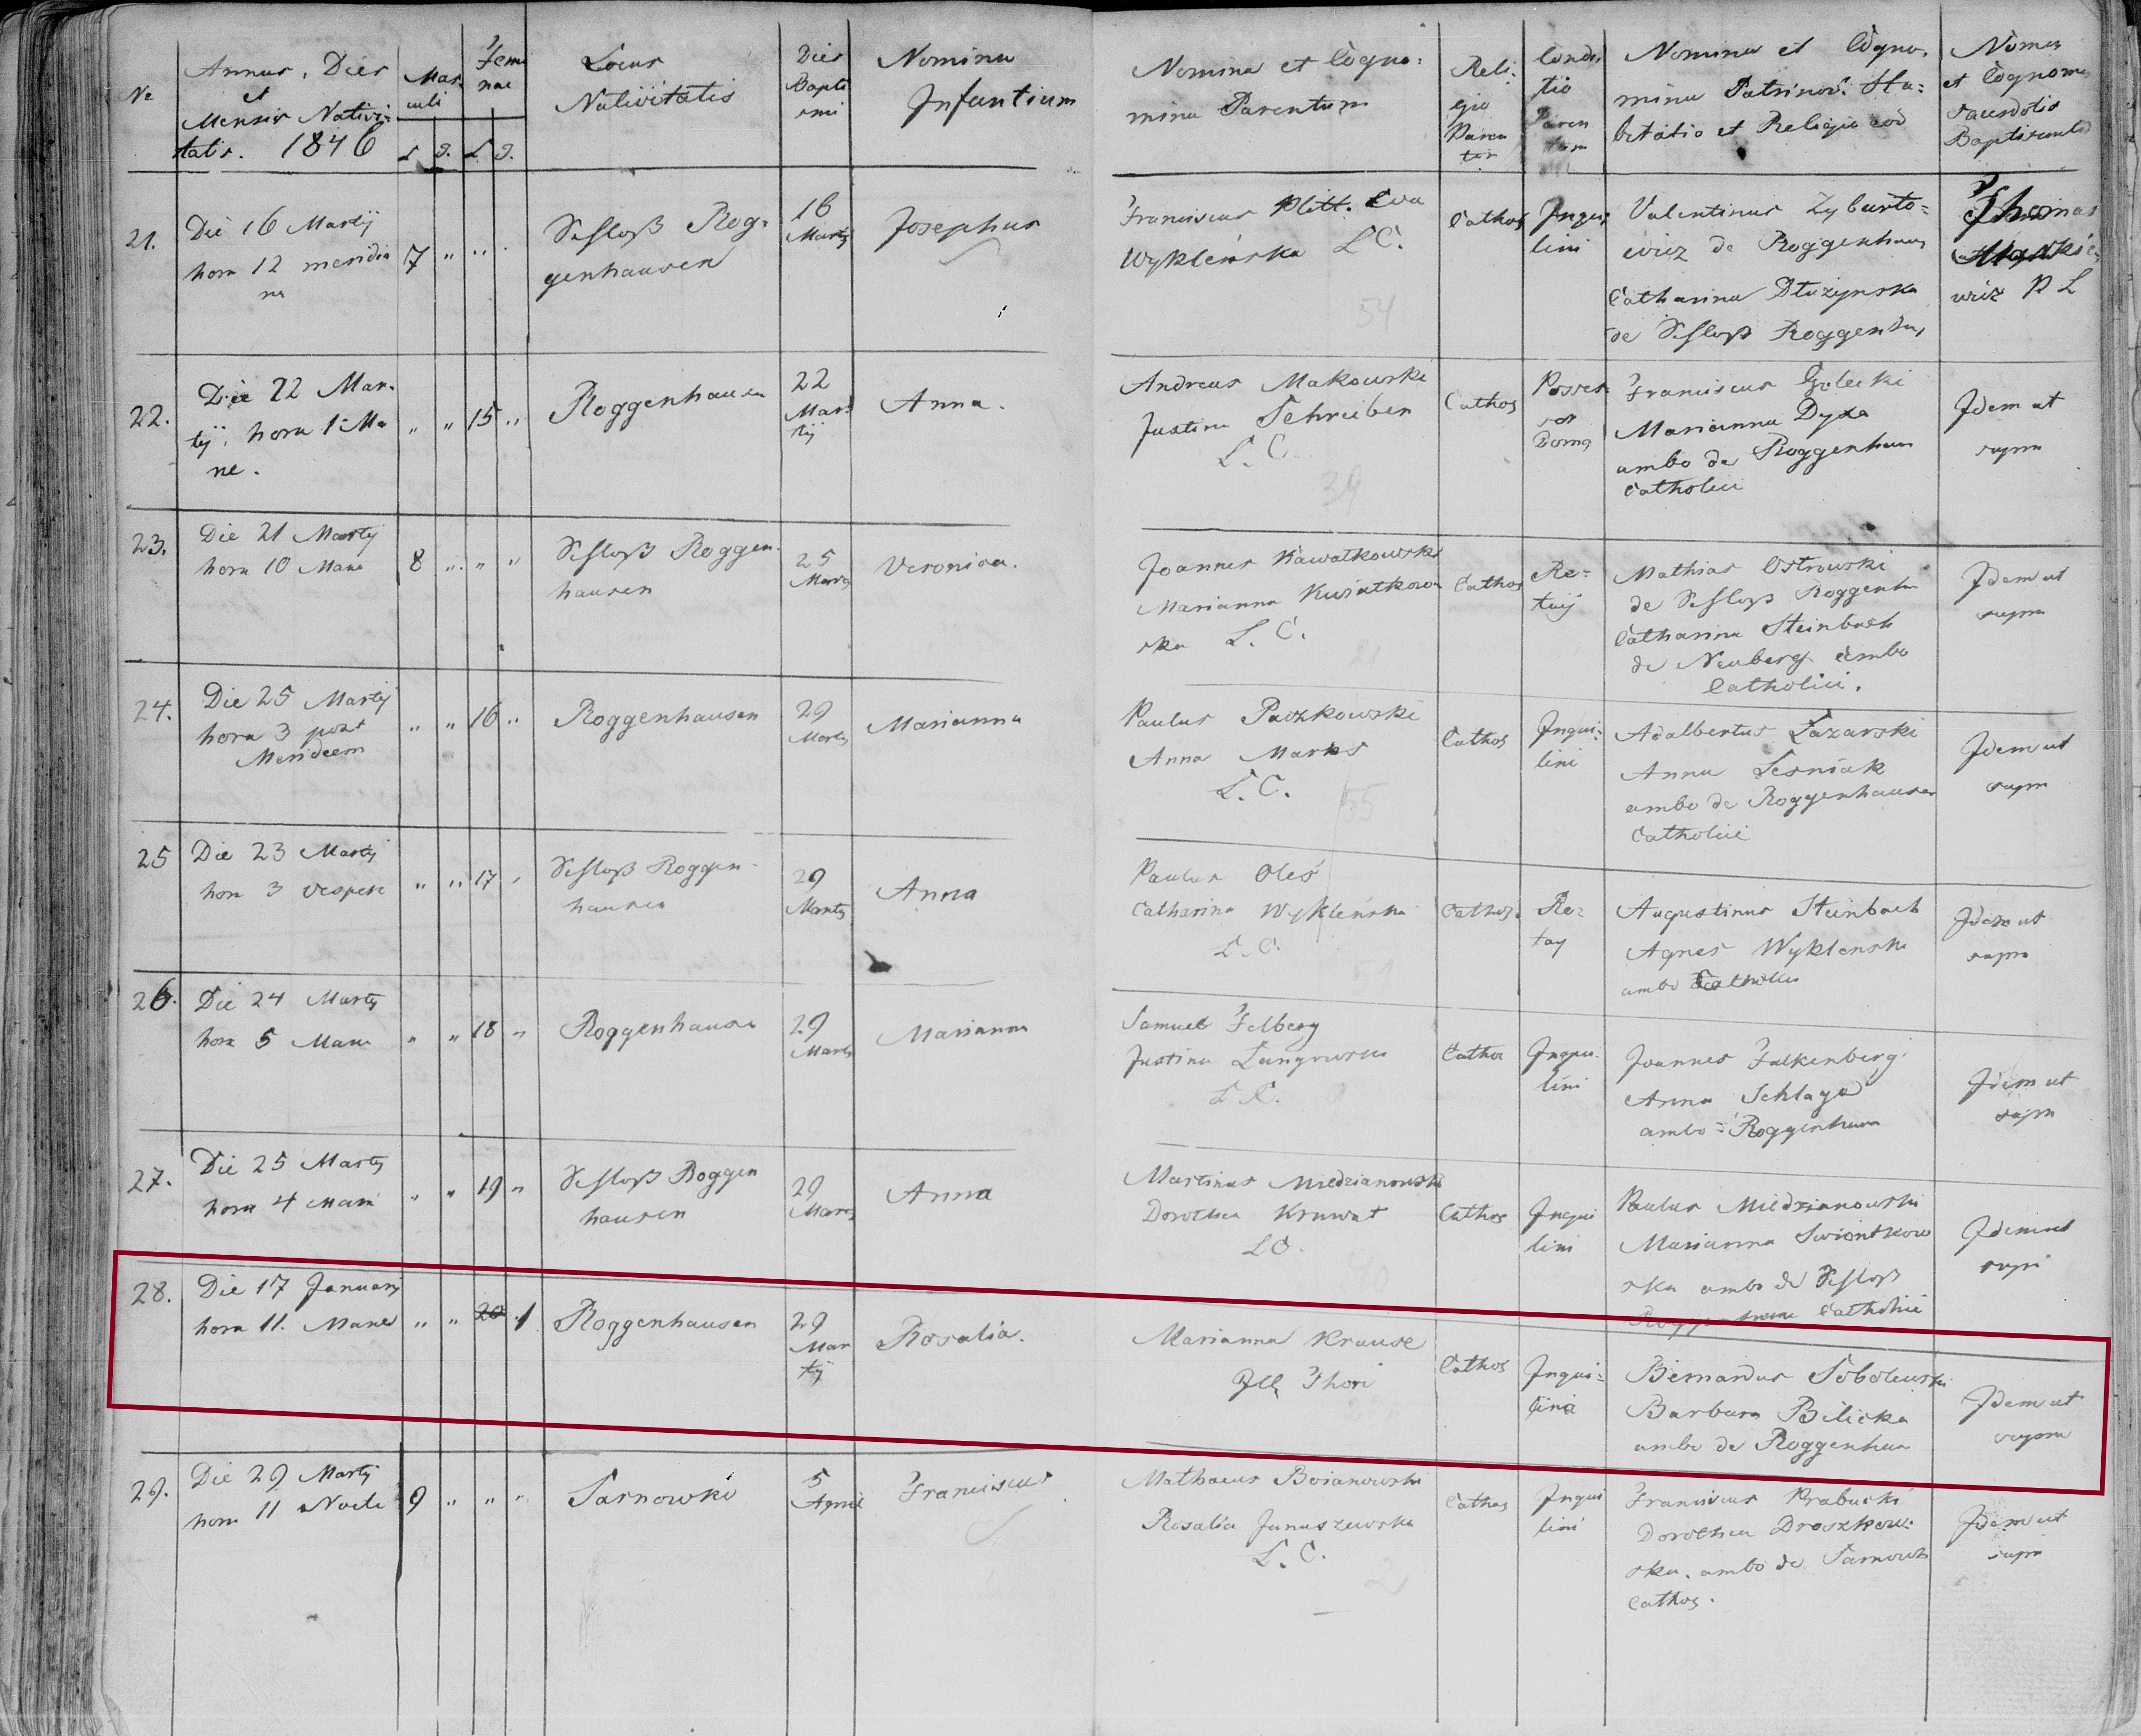 No
Annus, Dies
et
Mensis Nativi-
tatis. 1846
Mas
culi
L J.
Femi
nae
L J.
Locus
Nativitatis
Dies
Bapti
smi
Nomina
Infantium
Nomina et Cogno-
mina Parentum
Reli-
gio
Paren
tor
Condi
tio
Paren
tum
Nomina et Cogno-
mina Patrinor. Ha-
bitatio et Religio eor
Nomen
et Cognomen
Sacerdotis
Baptisantis
21.
Die 16 Martij
hora 12 meridia
na
7 " " "
Schloß Rog-
genhausen
16
Martij
Josephus
Franciscus Plitt. Eva
Wykleńska L C.
54
Cathol
Inqui-
lini
Valentinus Zyburto-
wicz de Roggenhaus
Catharina Dłużynska
de Schloß Roggenhau
Thomas
wicz P L
22.
Die 22 Mar-
tij, hora 1 Ma
ne.
" " 15 "
Roggenhausen
22
Mar-
tij
Anna.
Andreas Makowski
Justina Schreiber
L. C.
34
Cathol
Posses-
sor
Domus
Franciscus Golecki
Marianna Dyxa
ambo de Roggenhaus
Catholici
Idem ut
supra
23.
Die 21 Martij
hora 10 Mane
8 " " "
Schloß Roggen-
hausen
25
Martij
Veronica.
Joannes Kawatkowski
Marianna Kwiatkow-
ska L. C.
21
Cathol
Re-
taij
Mathias Ostrowski
de Schloß Roggenha
Catharina Steinbach
de Neuberg ambo
Catholici.
Idem ut
supra
24.
Die 25 Martij
hora 3 post
Meridiem
" " 16 "
Roggenhausen
29
Martij
Marianna
Paulus Paczkowski
Anna Marks
L. C.
55
Cathol
Inqui-
lini
Adalbertus Łazarski
Anna Lesniak
ambo de Roggenhausen
Catholici
Idem ut
supra
25
Die 23 Martij
hora 3 vespere
" " 17 "
Schloß Roggen-
hausen
29
Martij
Anna
Paulus Oleś
Catharina Wykleńska
L. C.
Cathol.
Re-
tay
Augustinus Steinbach
Agnes Wyklenska
ambo Catholici
Idem ut
supra
26.
Die 24 Martij
hora 5 Mane
" " 18 "
Roggenhausen
29
Martij
Marianna
Samuel Felberg
Justina Langowska
L C.
Cathol
Inqui-
lini
Joannes Falkenberg
Anna Schlaga
ambo - Roggenhaus
Idem ut
supra
27.
Die 25 Martij
hora 4 Mane
" " 19 "
Schloß Roggen
hausen
29
Martij
Anna
Martinus Miedzianowski
Dorothea Krumat
L C.
40
Cathol
Inqui
lini
Paulus Miedzianowski
Marianna Swiontkow
ska ambo de Schloß
Roggenhaus Catholici
Idem ut
supra
28.
Die 17 Januarij
hora 11. Mane
" " 20 1
Roggenhausen
29
Mar
tij
Rosalia.
Marianna Krause
Ill Thori
Cathol
Inqui-
lina
Bernardus Sobolewski
Barbara Bilicka
ambo de Roggenhau
Idem ut
supra
29.
Die 29 Martij
hora 11 Nocte
9 " " "
Tarnowko
5
April
Franciscus
Mathaeus Boianowski
Rosalia Januszewska
L. C.
2
Cathol
Inqui
lini
Franciscus Prabucki
Dorothea Droszkow-
ska. ambo de Tarnowk
Cathol.
Idem ut
supra